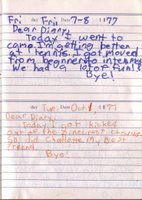 Fri day Fri Date 7-8 1977
Dear Diary,
Today I went to
camp. I'm getting better
at tennis. I got moved
from beginner to interm
We had a lot of fun!
Bye!
day Tue. Date Oct 1, 1977
Dear Diary,
Today I got kicked
out of the
So did Charlotte my best
friend.
Bye!